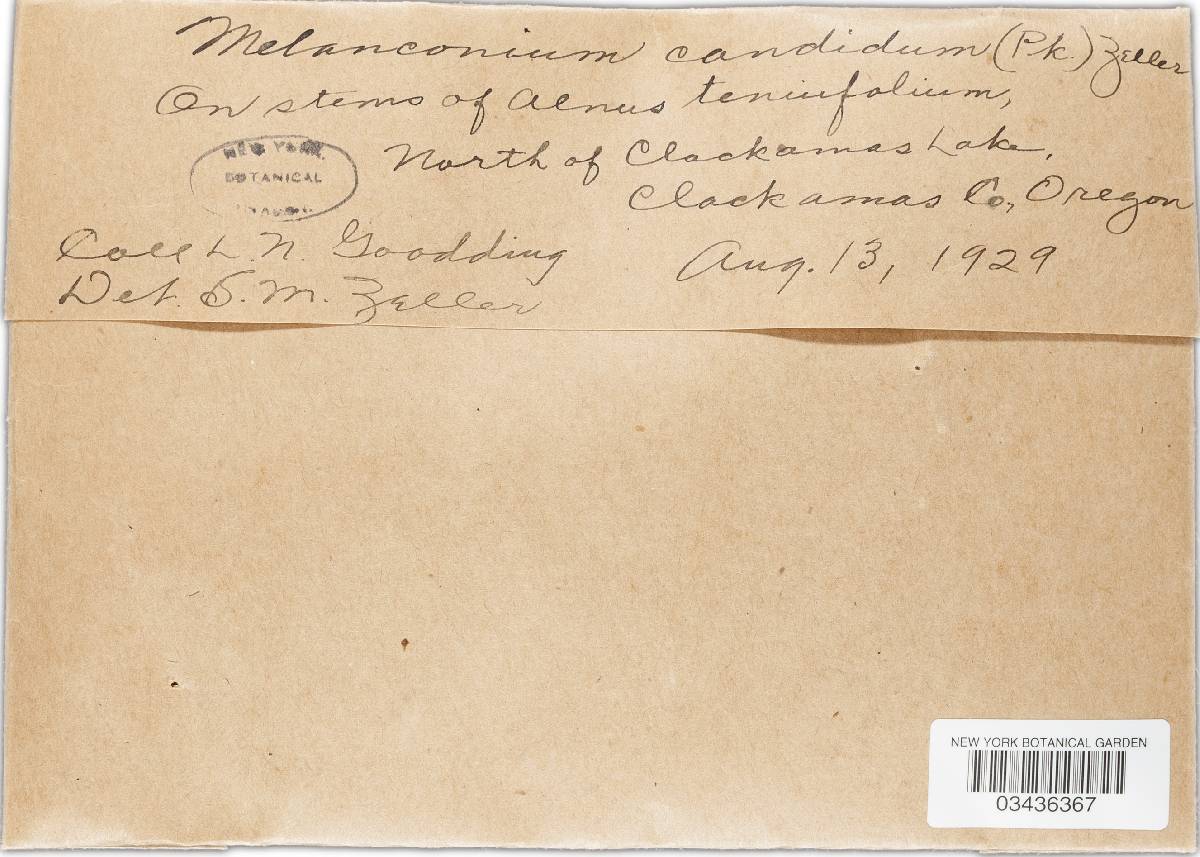 Melanconium candidum (Pk.) Zeller
On stems of Alnus teniufolium,
North of Clackamas Lake,
Clackamas Co., Oregon
NEW YORK
BOTANICAL
Coll L. N. Goodding
Aug. 13, 1929
Det. S. M. Zeller
NEW YORK BOTANICAL GARDEN
03436367